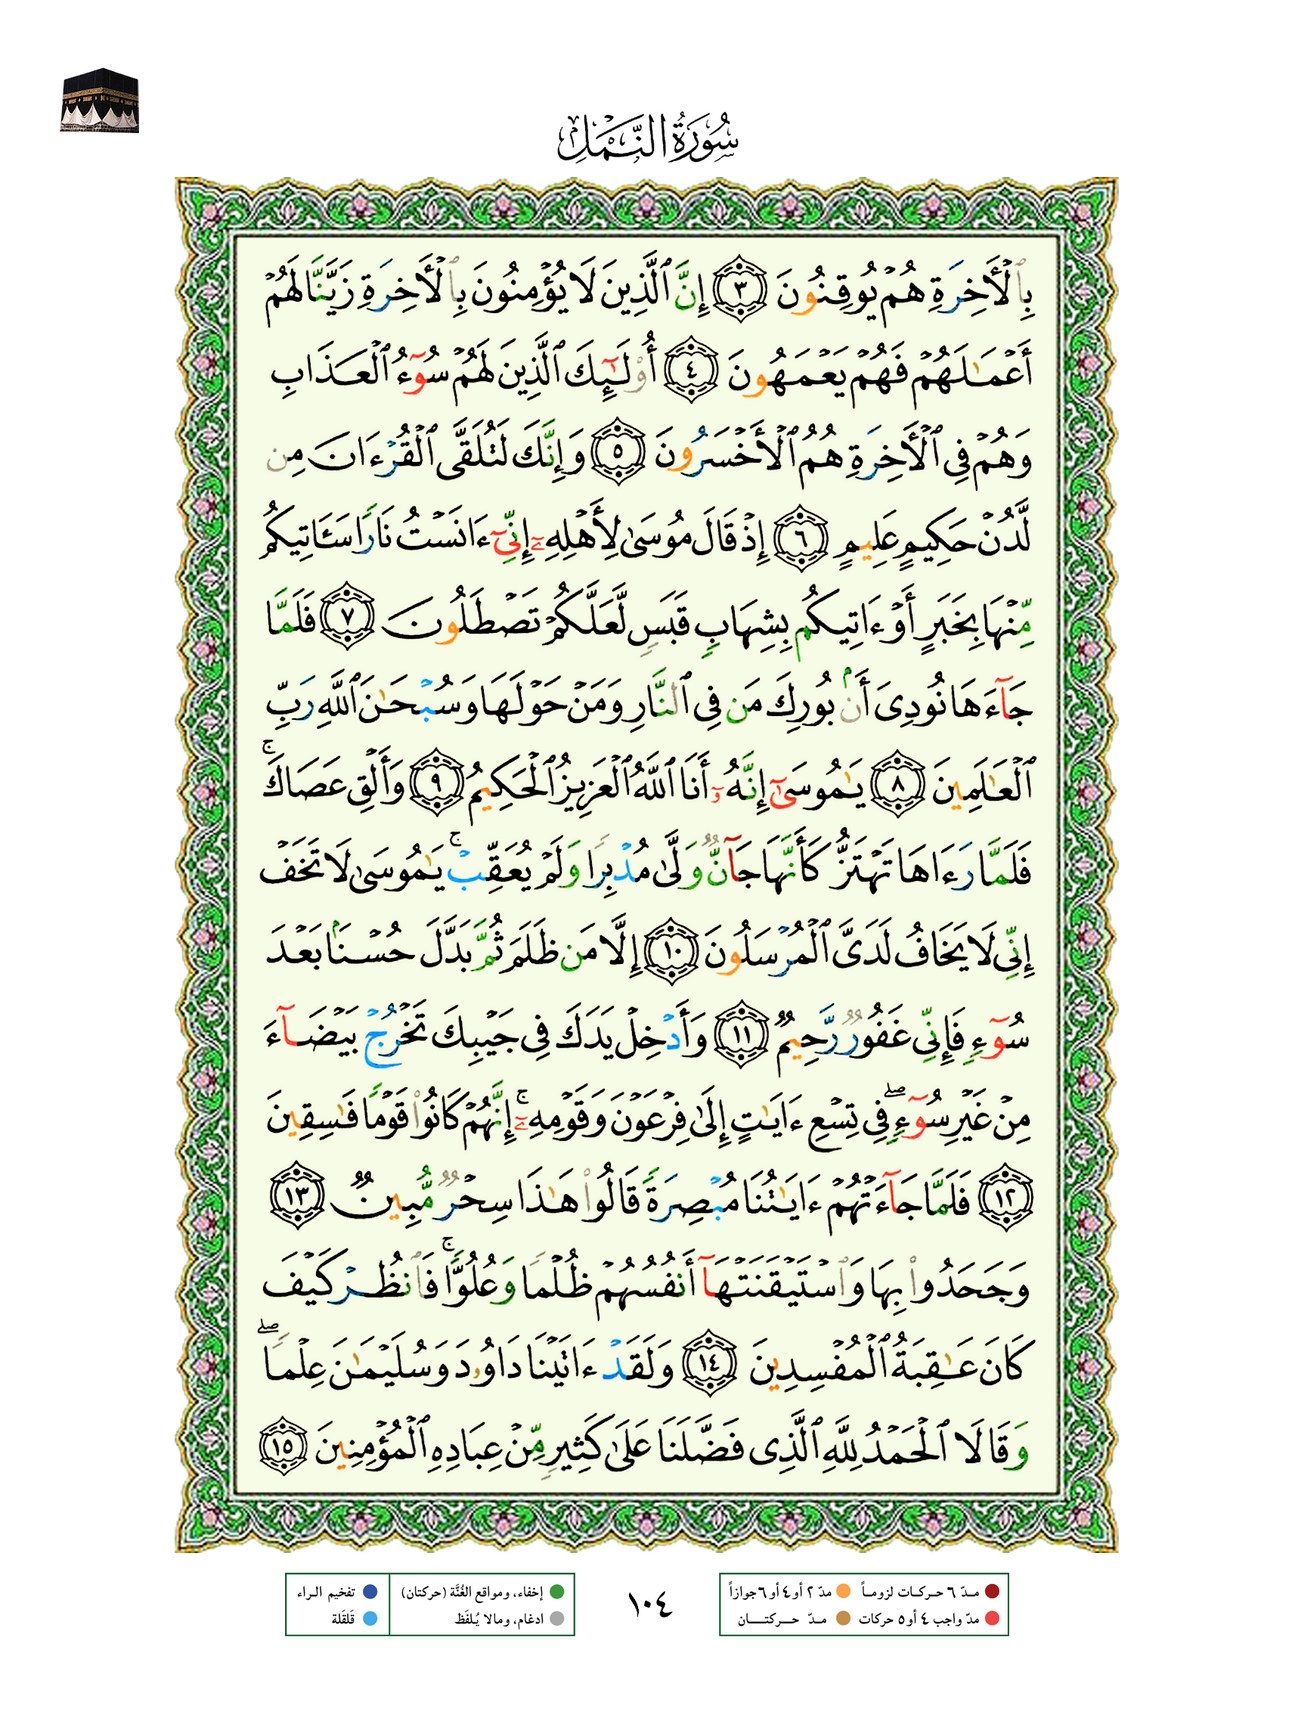 سُورَةُ النَّمْلِ
بِٱلْأَخِرَةِ هُمْ يُوقِنُونَ ٣ إِنَّ ٱلَّذِينَ لَا يُؤْمِنُونَ بِٱلْأَخِرَةِ زَيَّنَّا لَهُمْ
أَعْمَٰلَهُمْ فَهُمْ يَعْمَهُونَ ٤ أُوْلَٰٓئِكَ ٱلَّذِينَ لَهُمْ سُوٓءُ ٱلْعَذَابِ
وَهُمْ فِى ٱلْأَخِرَةِ هُمُ ٱلْأَخْسَرُونَ ٥ وَإِنَّكَ لَتُلَقَّى ٱلْقُرْءَانَ مِن
لَّدُنْ حَكِيمٍ عَلِيمٍ ٦ إِذْ قَالَ مُوسَىٰ لِأَهْلِهِۦٓ إِنِّىٓ ءَانَسْتُ نَارًا سَـَٔاتِيكُم
مِّنْهَا بِخَبَرٍ أَوْ ءَاتِيكُم بِشِهَابٍ قَبَسٍ لَّعَلَّكُمْ تَصْطَلُونَ ٧ فَلَمَّا
جَآءَهَا نُودِىَ أَنۢ بُورِكَ مَن فِى ٱلنَّارِ وَمَنْ حَوْلَهَا وَسُبْحَٰنَ ٱللَّهِ رَبِّ
ٱلْعَٰلَمِينَ ٨ يَٰمُوسَىٰٓ إِنَّهُۥٓ أَنَا ٱللَّهُ ٱلْعَزِيزُ ٱلْحَكِيمُ ٩ وَأَلْقِ عَصَاكَ ۚ
فَلَمَّا رَءَاهَا تَهْتَزُّ كَأَنَّهَا جَآنٌّ وَلَّىٰ مُدْبِرًا وَلَمْ يُعَقِّبْ ۚ يَٰمُوسَىٰ لَا تَخَفْ
إِنِّى لَا يَخَافُ لَدَىَّ ٱلْمُرْسَلُونَ ١٠ إِلَّا مَن ظَلَمَ ثُمَّ بَدَّلَ حُسْنًۢا بَعْدَ
سُوٓءٍ فَإِنِّى غَفُورٌ رَّحِيمٌ ١١ وَأَدْخِلْ يَدَكَ فِى جَيْبِكَ تَخْرُجْ بَيْضَآءَ
مِنْ غَيْرِ سُوٓءٍ ۖ فِى تِسْعِ ءَايَٰتٍ إِلَىٰ فِرْعَوْنَ وَقَوْمِهِۦٓ ۚ إِنَّهُمْ كَانُوا۟ قَوْمًا فَٰسِقِينَ
١٢ فَلَمَّا جَآءَتْهُمْ ءَايَٰتُنَا مُبْصِرَةً قَالُوا۟ هَٰذَا سِحْرٌ مُّبِينٌ ١٣
وَجَحَدُوا۟ بِهَا وَٱسْتَيْقَنَتْهَآ أَنفُسُهُمْ ظُلْمًا وَعُلُوًّا ۚ فَٱنظُرْ كَيْفَ
كَانَ عَٰقِبَةُ ٱلْمُفْسِدِينَ ١٤ وَلَقَدْ ءَاتَيْنَا دَاوُۥدَ وَسُلَيْمَٰنَ عِلْمًا ۖ
وَقَالَا ٱلْحَمْدُ لِلَّهِ ٱلَّذِى فَضَّلَنَا عَلَىٰ كَثِيرٍ مِّنْ عِبَادِهِ ٱلْمُؤْمِنِينَ ١٥
مـدّ ٦ حركـات لزومـاً مدّ ٢ أو ٤ أو ٦ جوازاً
مدّ واجب ٤ أو ٥ حركات مـدّ حـركتـــان
١٠٤
إخفاء، ومواقع الغُنَّة (حركتان) تفخيم الراء
ادغام، ومالا يُلفَظ قَلقَلة